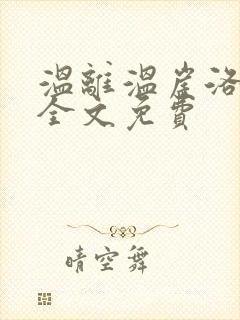 温離温崖洛
全文免費
晴空舞